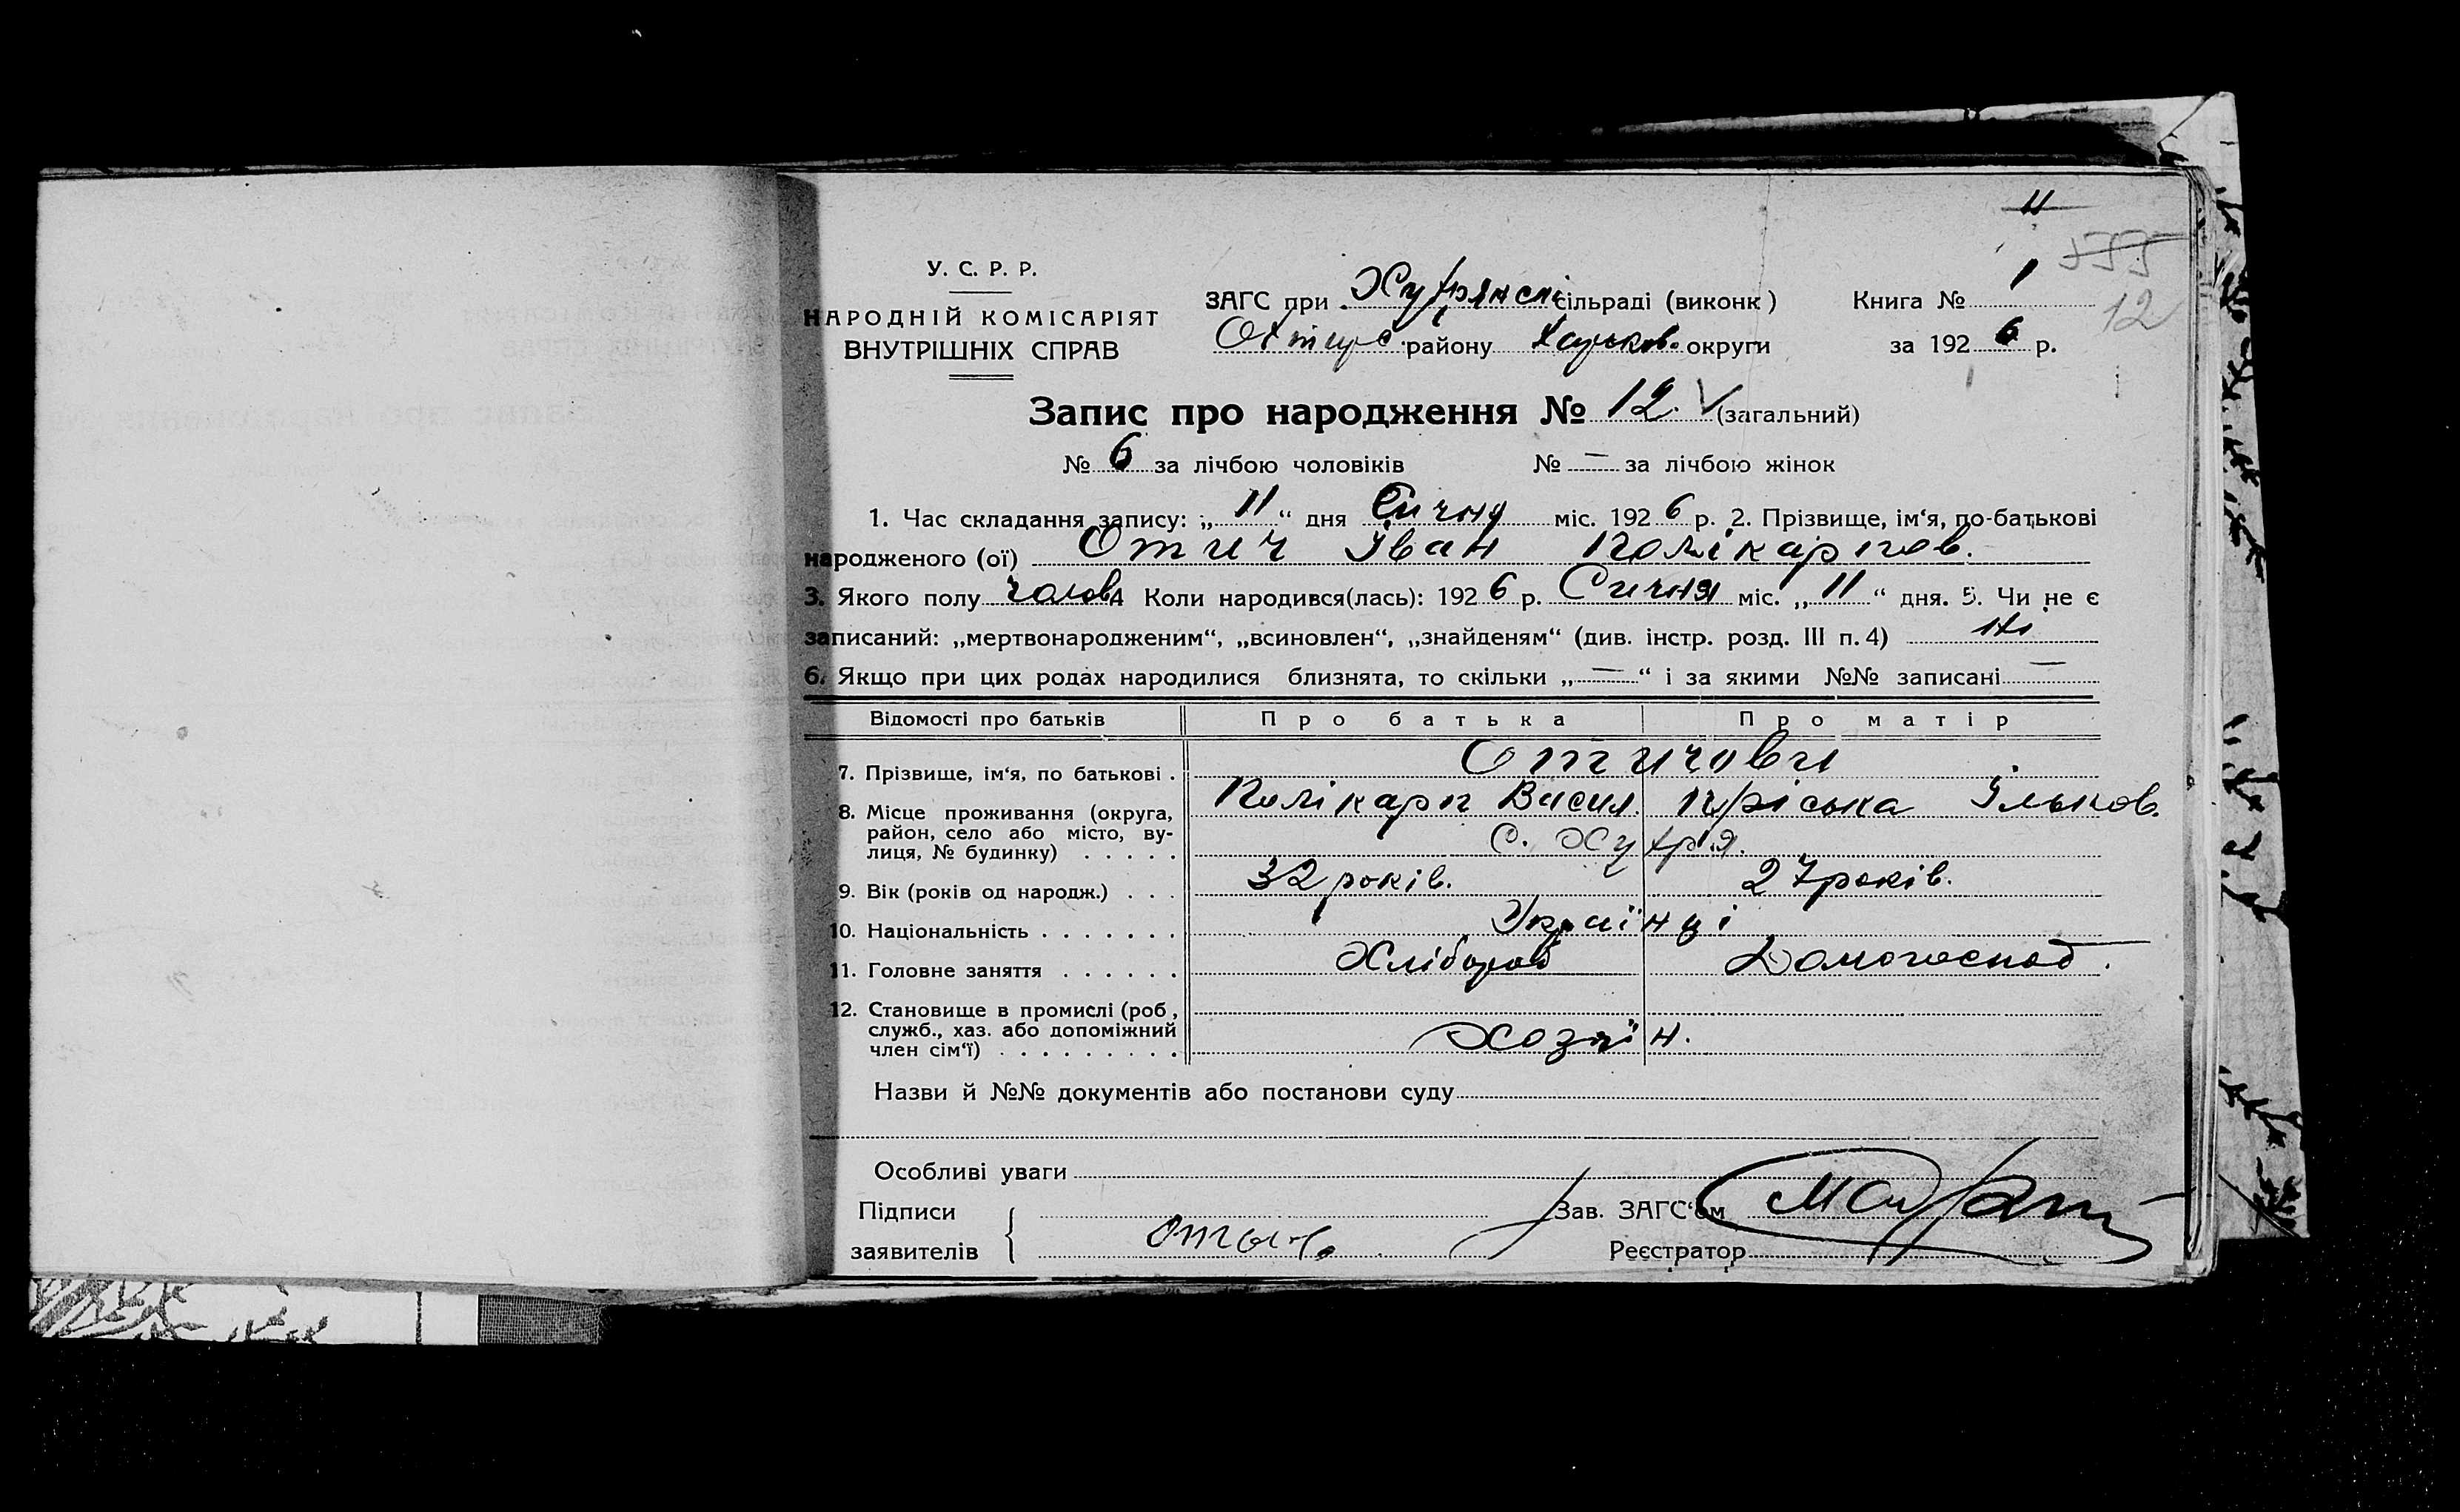 11
555
12
У. С. Р. Р.
НАРОДНІЙ КОМІСАРІЯТ
ВНУТРІШНІХ СПРАВ
ЗАГС при Хухрянські сільраді (виконк)
Охтирс. району Харьков. округи
Книга № 1
за 1926 р.
Запис про народження № 12. (загальний)
№ 6 за лічбою чоловіків № — за лічбою жінок
1. Час складання запису: „11“ дня Січня міс. 1926 р. 2. Прізвище, ім‘я, по-батькові
народженого (ої) Отич Іван Полікарпов.
3. Якого полу чолов. 4 Коли народився(лась): 1926 р. Січня міс. „11“ дня. 5. Чи не є
записаний: „мертвонародженим“, „всиновлен“, „знайденям“ (див. інстр. розд. III п. 4) Ні
6. Якщо при цих родах народилися близнята, то скільки „—“ і за якими №№ записані —
Відомості про батьків Про батька Про матір
7. Прізвище, ім‘я, по батькові . Отичови
Полікарп Васил. Пріська Ільков.
8. Місце проживання (округа,
район, село або місто, ву-
лиця, № будинку) . . . . . с. Хухря.
9. Вік (років од народж.) . . . 32 років. 27 років.
10. Національність . . . . . . . Українці
11. Головне заняття . . . . . . Хлібороб Домогоспод.
12. Становище в промислі (роб,
служб., хаз. або допоміжний
член сім‘ї) . . . . . . . . . Хозяїн.
Назви й №№ документів або постанови суду
Особливі уваги
Підписи Зав. ЗАГС‘ом
заявителів Отычь Реєстратор